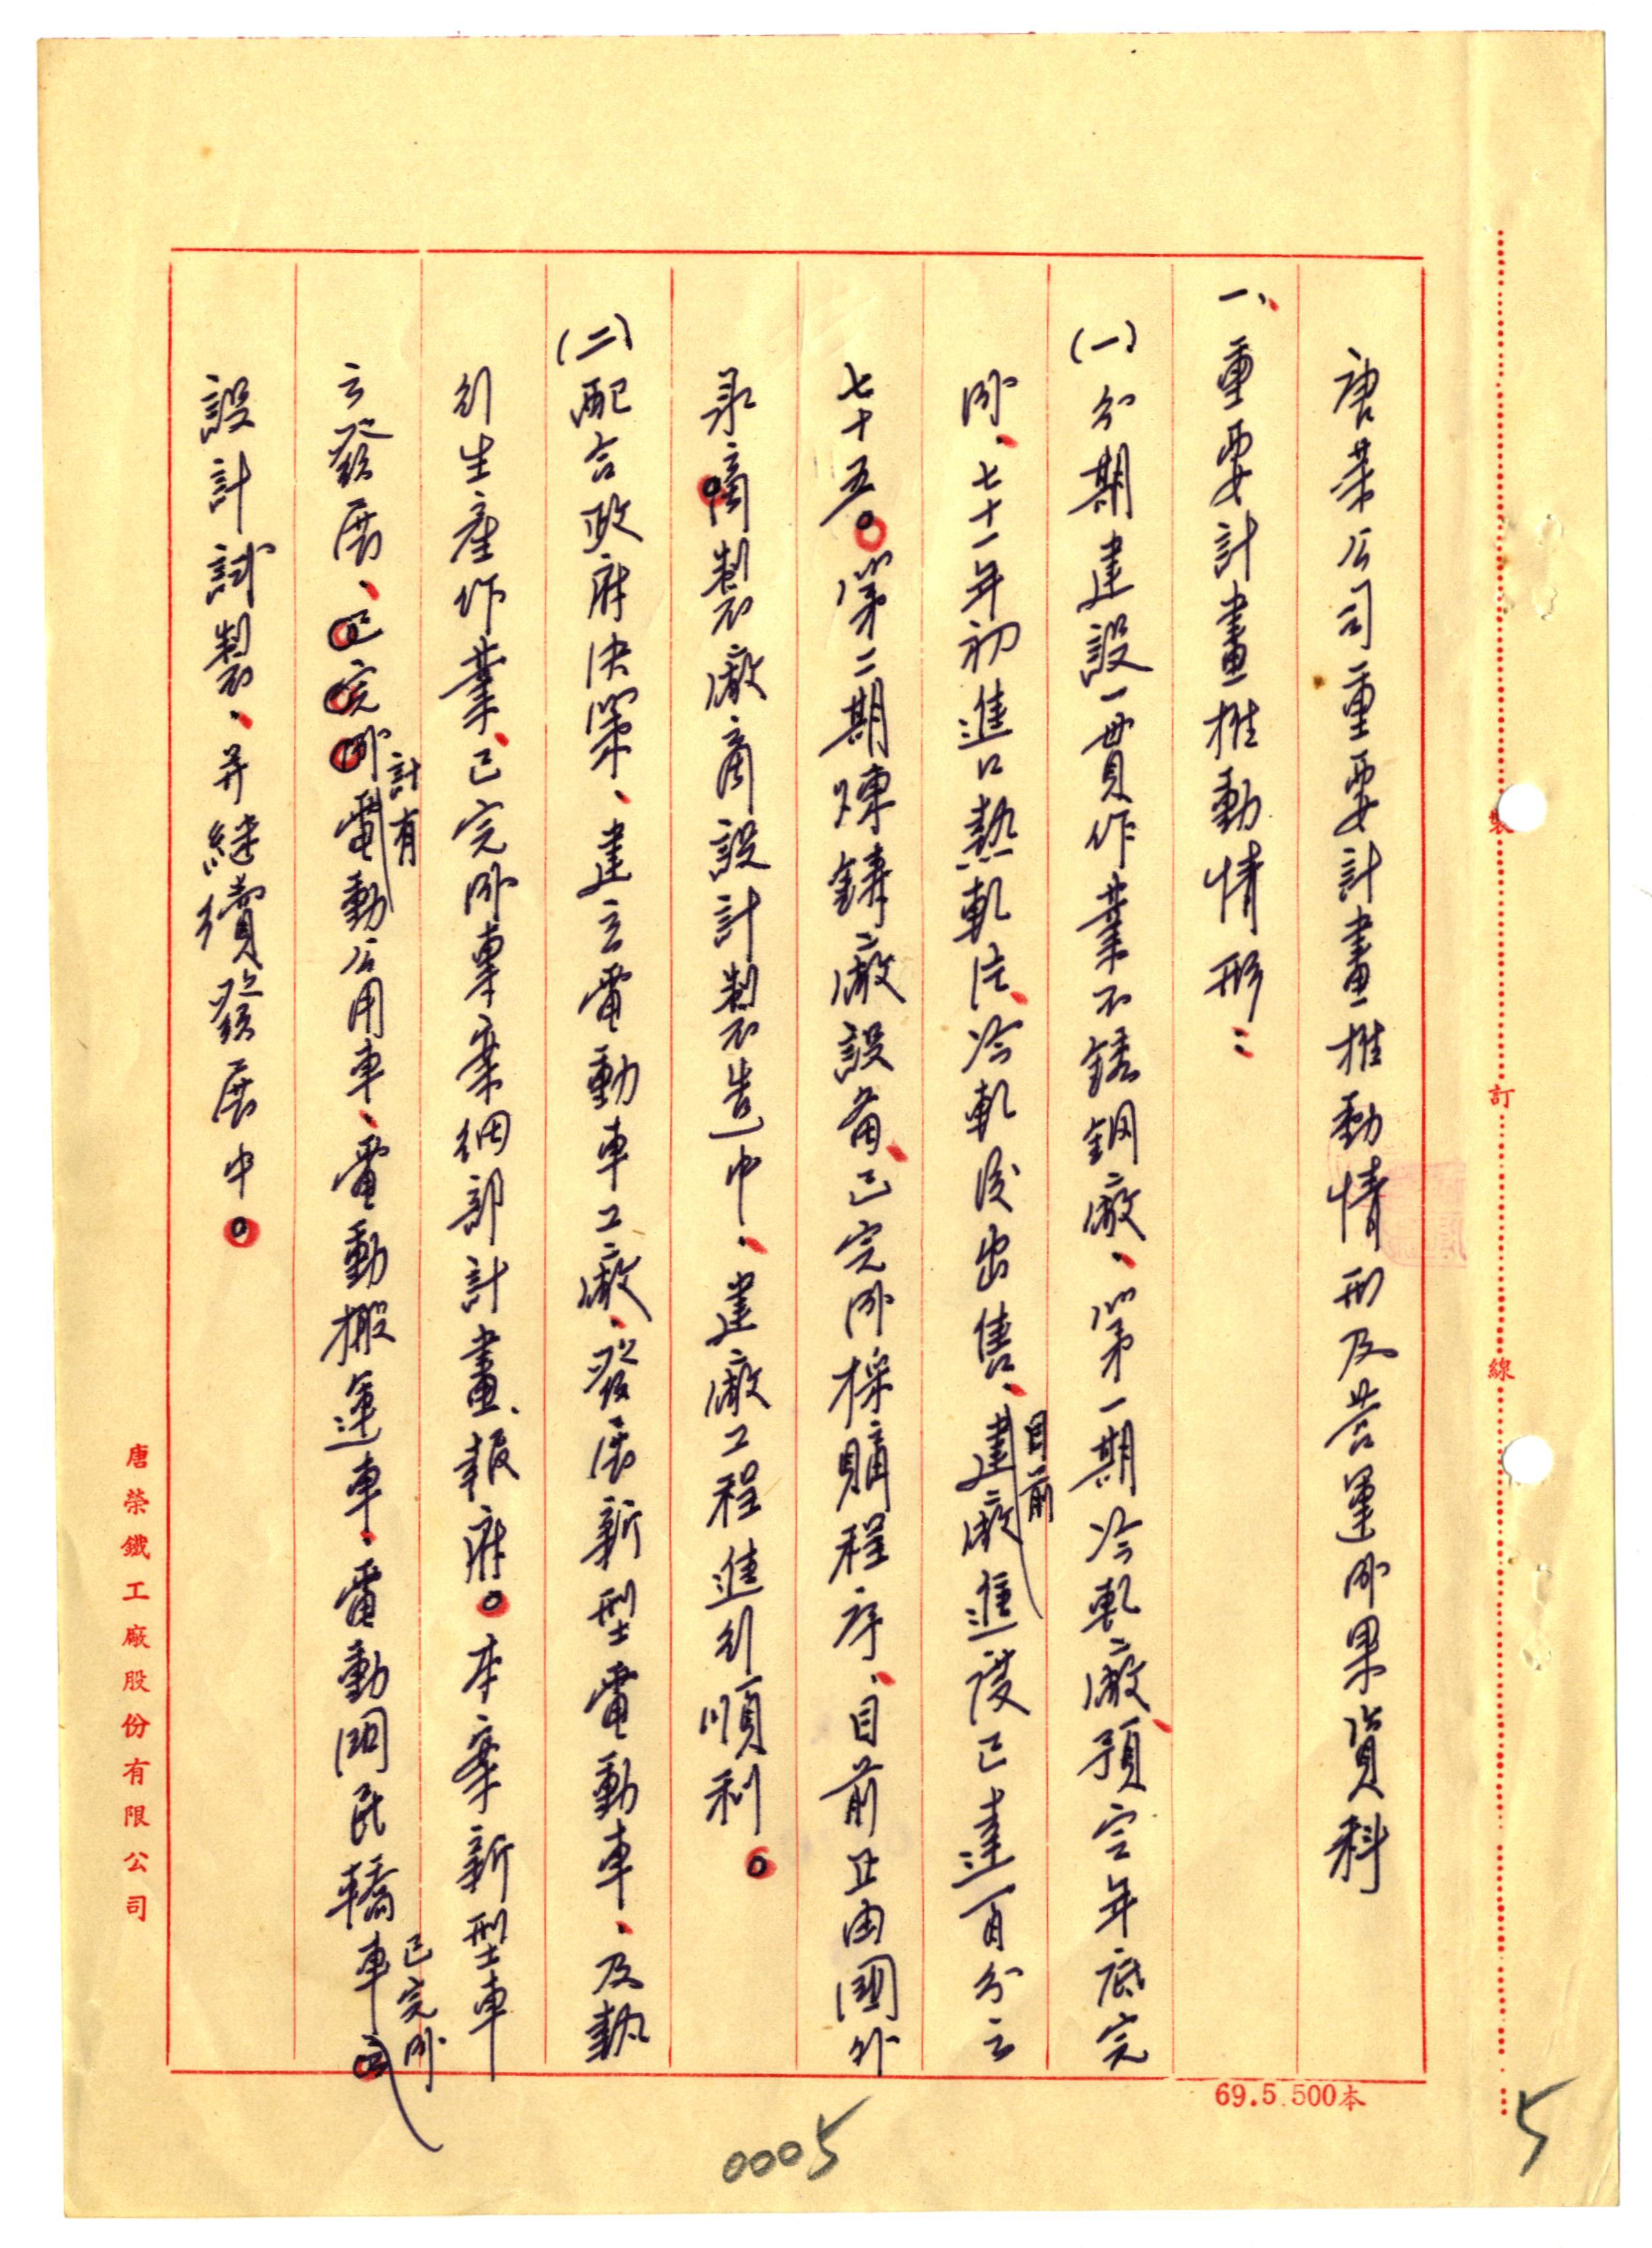 唐荣公司重要計畫推動情形及营運成果資料
一、重要計畫推動情形：
(一)分期建設一貫作業不銹鋼廠、第一期冷軋廠、預定年底完
成、七十一年初進口熱軋片、冷軋後出售、建廠進度已達百分之
目前
七十五。第二期煉鋼廠設備、已完成採購程序、目前正由國外
承製廠商設計製造中、建廠工程進行順利。
(二)配合政府決策、建立電動車工廠、發展新型電動車、及執
行生產作業、已完成專案細部計畫、報府。本案新型車
之發展、已完成電動公用車、電動搬運車、電動國民轎車
計有
已完成
設計試製、并継續發展中。
唐榮鐵工廠股份有限公司
裝
訂
線
69.5.500本
0005
5